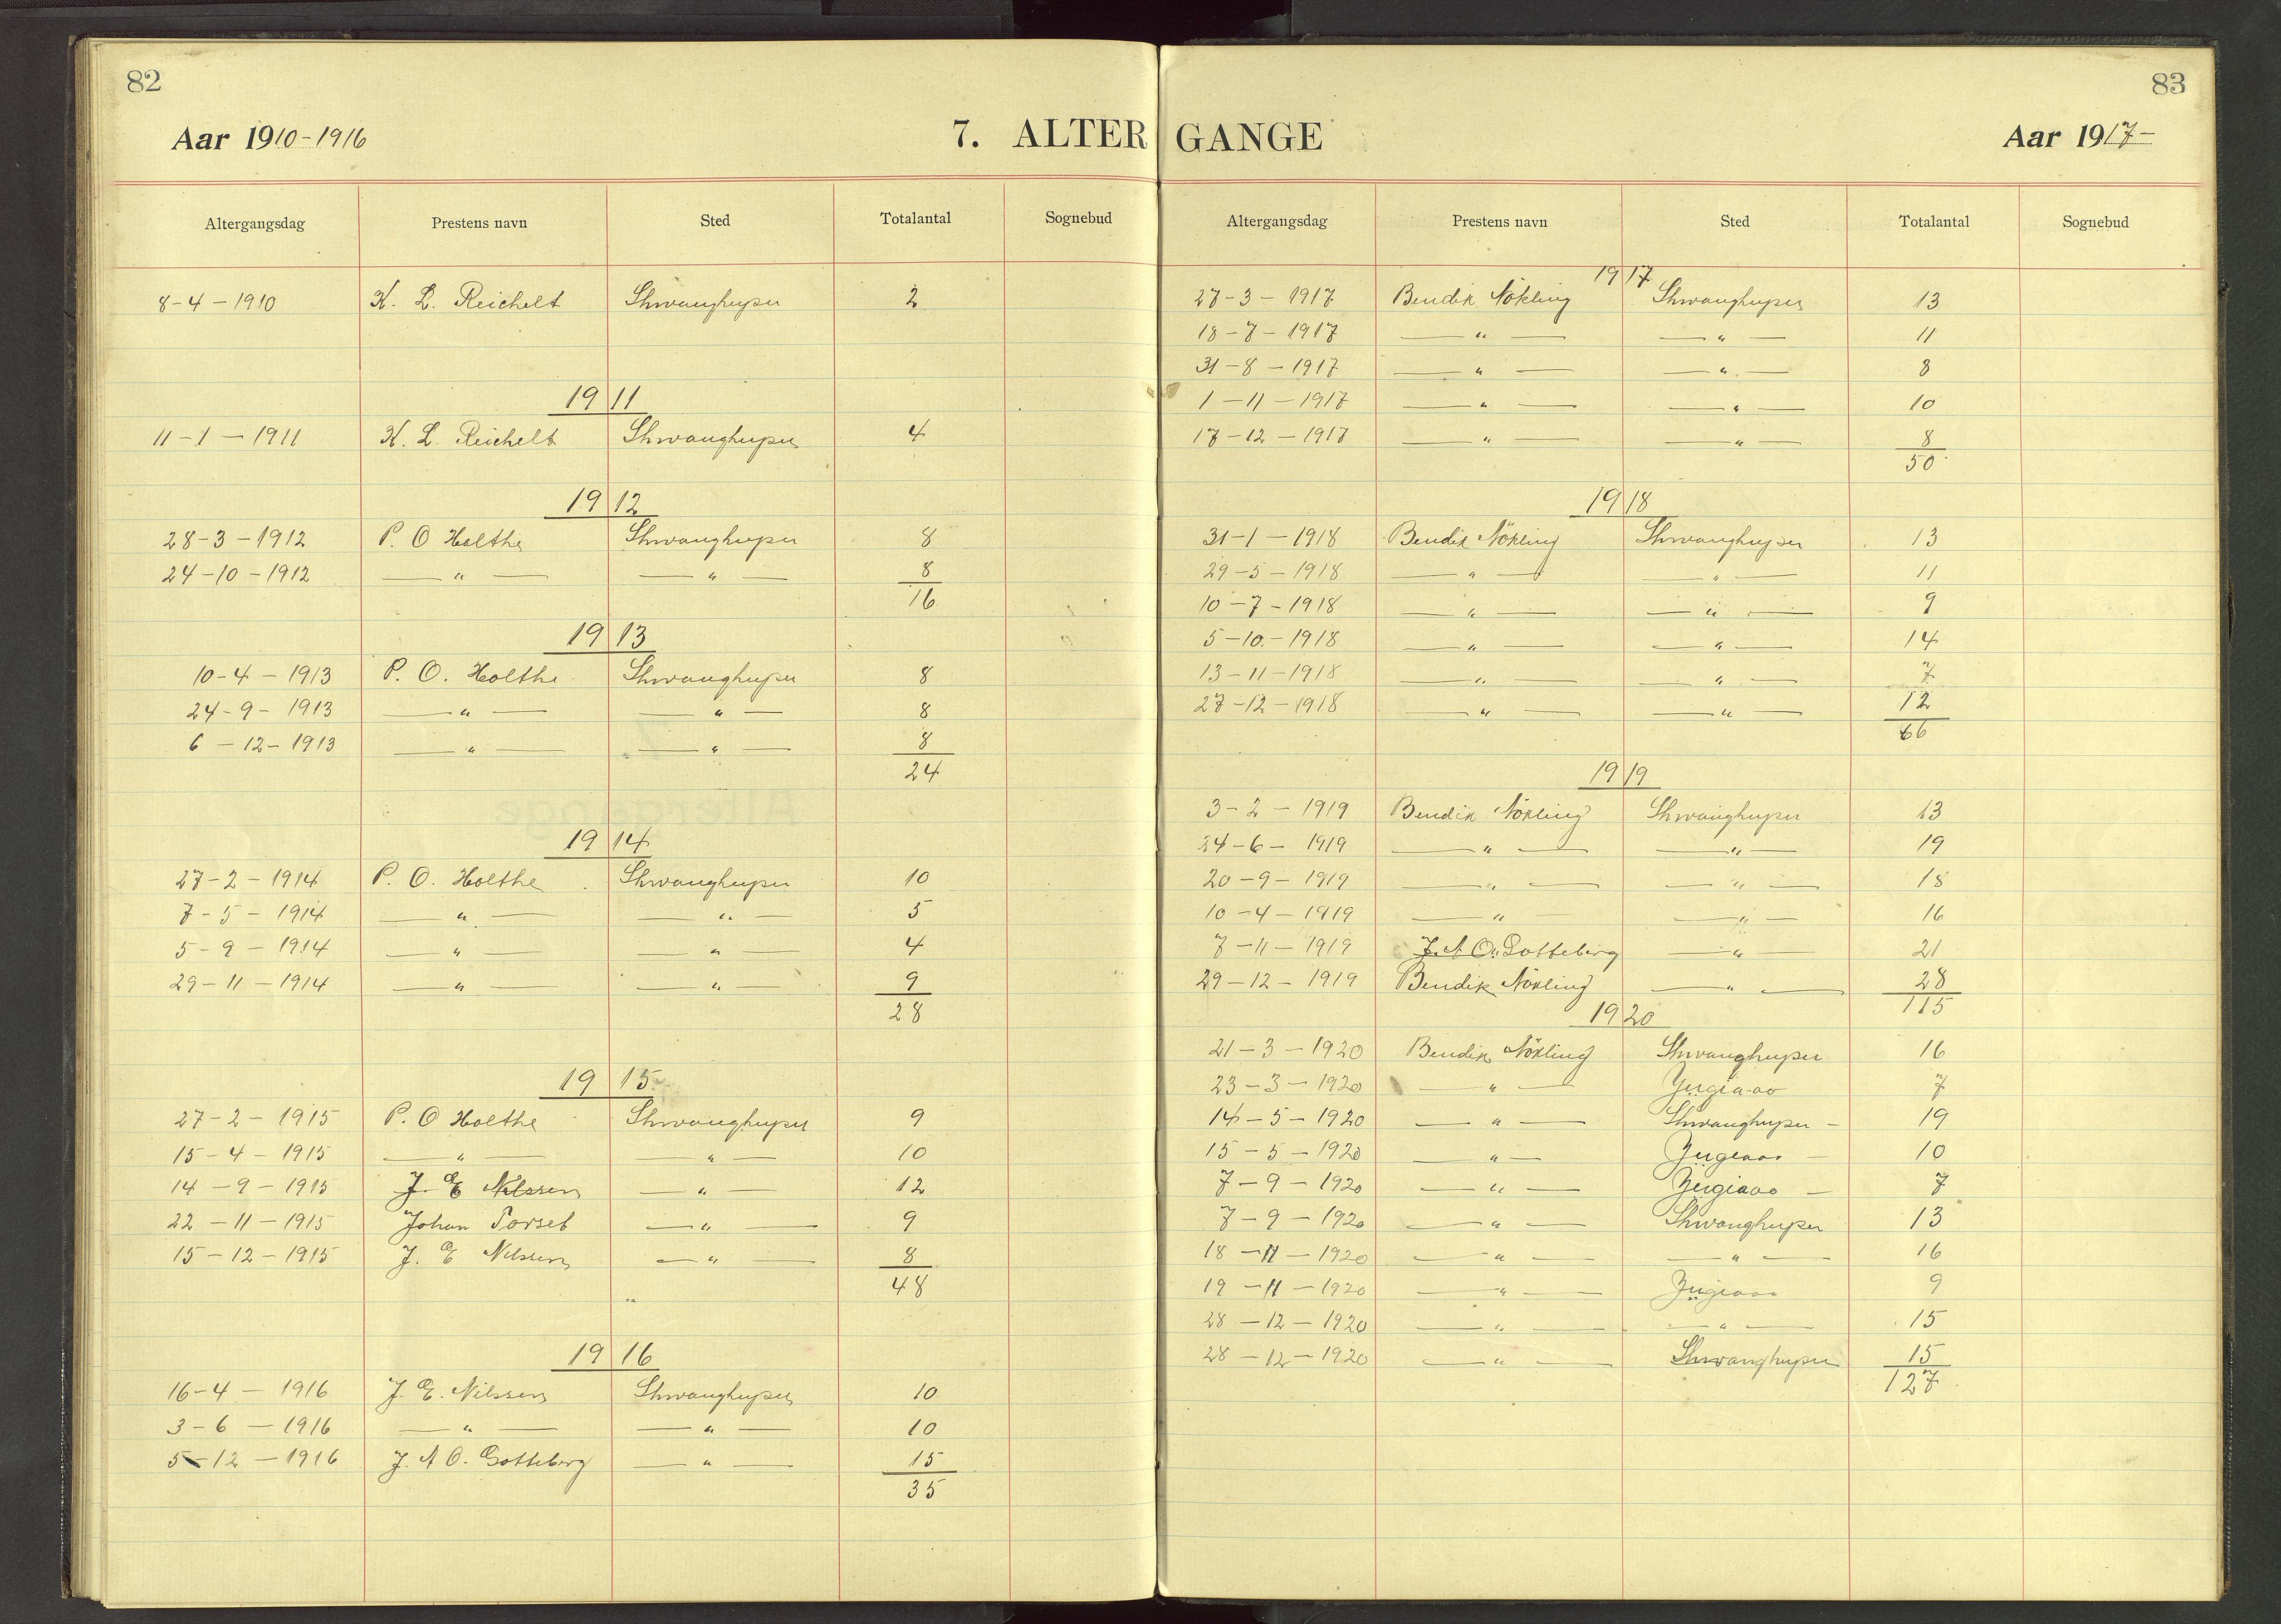 82
Aar 1910-1916
7. ALTER
Altergangsdag Prestens navn Sted Totalantal Sognebud
8-4-1910 K. L. Reichelt Shwanghupu 2
1911
11-1-1911 K. L. Reichelt Shwanghupu 4
1912
28-3-1912 P. O Holthe Shwanghupu 8
24-10-1912 —"— —"— 8
16
1913
10-4-1913 P. O. Holthe Shwanghupu 8
24-9-1913 —"— —"— 8
6-12-1913 —"— —"— 8
24
1914
27-2-1914 P. O. Holthe Shwanghupu 10
7-5-1914 —"— —"— 5
5-9-1914 —"— —"— 4
29-11-1914 —"— —"— 9
28
1915
27-2-1915 P. O Holthe Shwanghupu 9
15-4-1915 —"— —"— 10
14-9-1915 J. E Nilssen —"— 12
22-11-1915 Johan Torset —"— 9
15-12-1915 J. E Nilssen —"— 8
48
"
1916
16-4-1916 J. E. Nilssen Shwanghupu 10
3-6-1916 —"— —"— 10
5-12-1916 J. A O. Gotteberg —"— 15
35
83
GANGE
Aar 1917-
Altergangsdag Prestens navn Sted Totalantal Sognebud
1917
27-3-1917 Bendik Nökling Shwanghupu 13
18-7-1917 —"— —"— 11
31-8-1917 —"— —"— 8
1-11-1917 —"— —"— 10
17-12-1917 —"— —"— 8
50
1918
31-1-1918 Bendik Nökling Shwanghupu 13
29-5-1918 —"— —"— 11
10-7-1918 —"— —"— 9
5-10-1918 —"— —"— 14
13-11-1918 —"— —"— 7
27-12-1918 —"— —"— 12
66
1919
3-2-1919 Bendik Nökling Shwanghupu 13
24-6-1919 —"— —"— 19
20-9-1919 —"— —"— 18
10-4-1919 —"— —"— 16
7-11-1919 J. A O. Gotteberg —"— 21
29-12-1919 Bendik Nökling —"— 28
115
1920
21-3-1920 Bendik Nökling Shwanghupu 16
23-3-1920 —"— Yügiaao 7
14-5-1920 —"— Shwanghupu — 19
15-5-1920 —"— 10
7-9-1920 —"— 7
7-9-1920 —"— Shwanghupu 13
18-11-1920 —"— —"— 16
19-11-1920 —"— 9
28-12-1920 —"— —"— 15
28-12-1920 —"— Shwanghupu 15
127